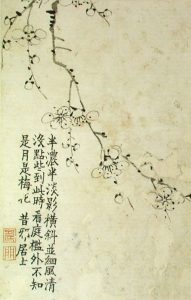 半濃半淡影橫斜並細風清
淺點些到此時看庭檻外不知
是月是梅花 昔邪居士